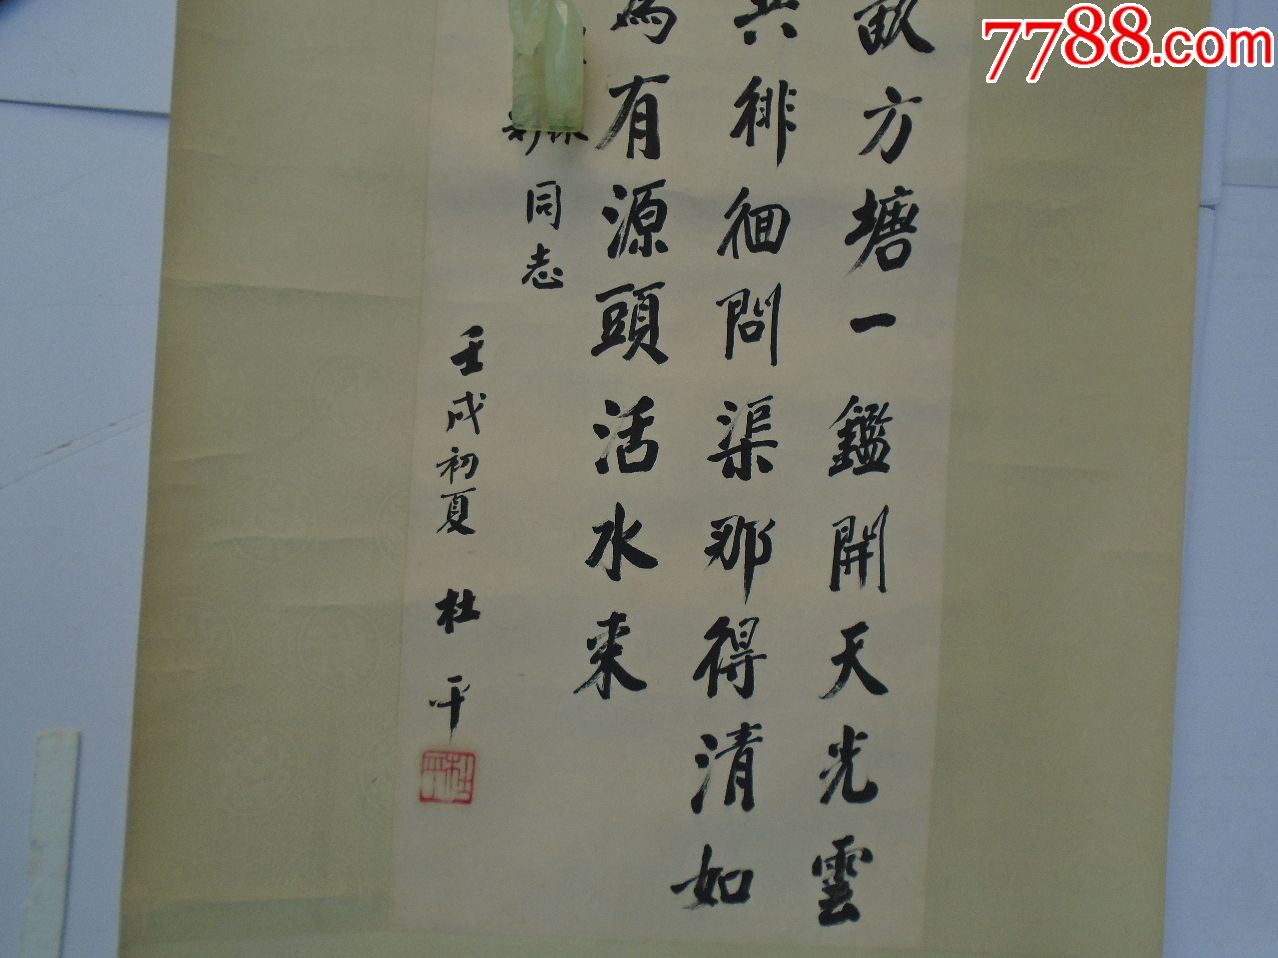 畝方塘一鑑開天光雲
共徘徊問渠那得清如
為有源頭活水來
同志
壬戌初夏 杜平
杜平
7788.com